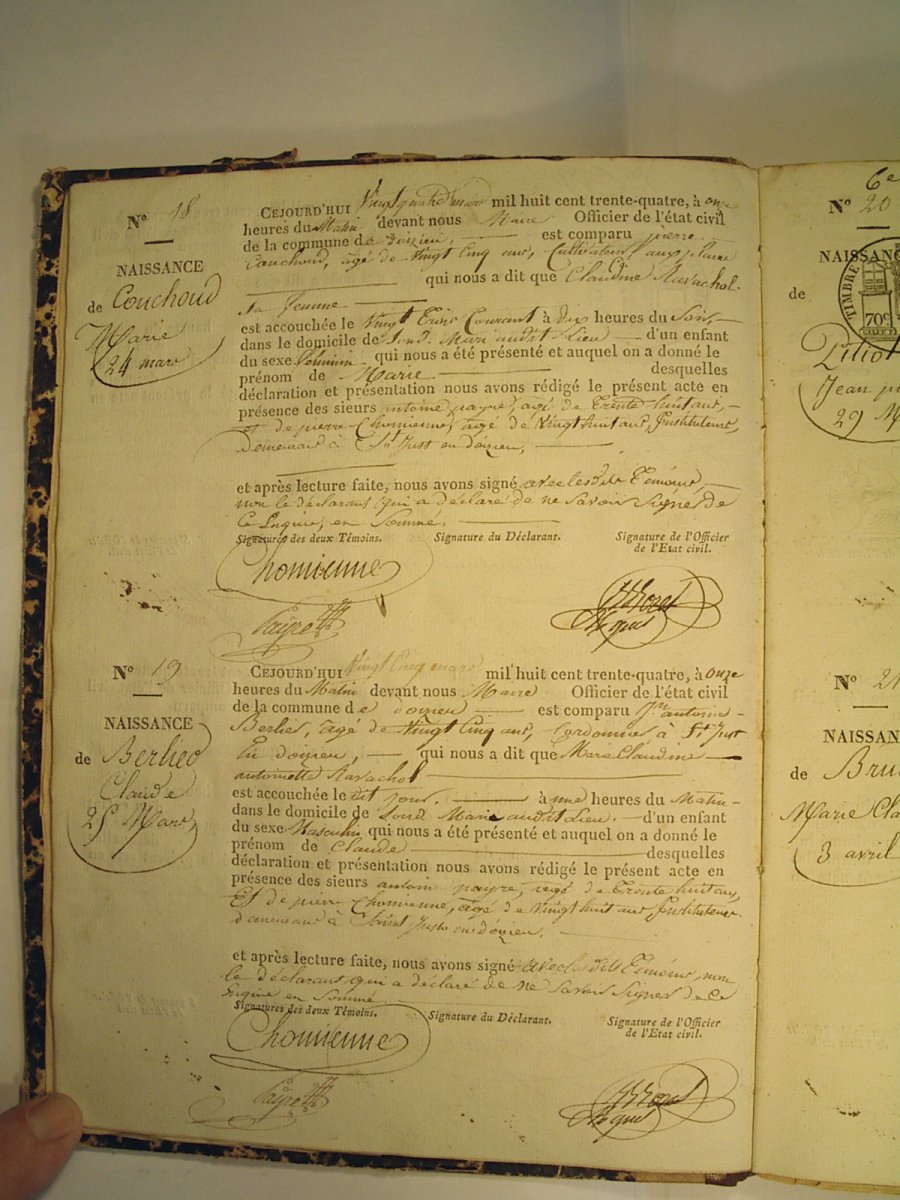 N° 18
NAISSANCE
de Couchoud
Marie
24 mars
CEJOURD'HUI Vingt quatre mars mil huit cent trente-quatre, à onze
heures du Matin devant nous Maire Officier de l'état civil
de la commune de doizieu, est comparu pierre
Couchoud, agé de Vingt Cinq ans, Cultivateur
qui nous a dit que Claudine Ravachol
sa femme
est accouchée le Vingt Trois Courant à dix heures du Soir,
dans le domicile de Son d. Mari audit Lieu d'un enfant
du sexe féminin qui nous a été présenté et auquel on a donné le
prénom de Marie desquelles
déclaration et présentation nous avons rédigé le présent acte en
présence des sieurs antoine payre, agé de Trente huit ans,
et de pierre Chomienne, agé de Vingt huit ans, Instituteur
demeurant à St Just en doizieu,
et après lecture faite, nous avons signé avec lesdits Témoins,
non le déclarant qui a déclaré de ne Savoir Signer de
Ce Enquis, en Sommé.
Signatures des deux Témoins. Signature du Déclarant. Signature de l'Officier
de l'Etat civil.
Chomienne
Payre
N° 19
NAISSANCE
de Berlied
Claude
25 Mars
CEJOURD'HUI Vingt Cinq mars mil huit cent trente-quatre, à onze
heures du Matin devant nous Maire Officier de l'état civil
de la commune de doizieu est comparu Jn antoine
Berlier, agé de Vingt Cinq ans, Cordonnier à St Just
En doizieu, qui nous a dit que Marie Claudine
antoinette Ravachol
est accouchée le dit jour. à une heures du Matin
dans le domicile de Son d. Mari audit Lieu. d'un enfant
du sexe Masculin qui nous a été présenté et auquel on a donné le
prénom de Claude desquelles
déclaration et présentation nous avons rédigé le présent acte en
présence des sieurs antoine payre, agé de Trente huit ans,
Et de pierre Chomienne, agé de Vingt huit ans Instituteur
demeurant à Saint Just en doizieu.
et après lecture faite, nous avons signé avec lesdits Témoins non
le déclarant qui a déclaré de ne Savoir Signer de Ce
Enquis en Sommé
Signatures des deux Témoins. Signature du Déclarant. Signature de l'Officier
de l'Etat civil.
Chomienne
Payre
6e
N° 20
NAISSANC
TIMBRE
70c
de
Jean
29 M
N° 21
NAISSAN
de Bru
Marie Cla
3 avril